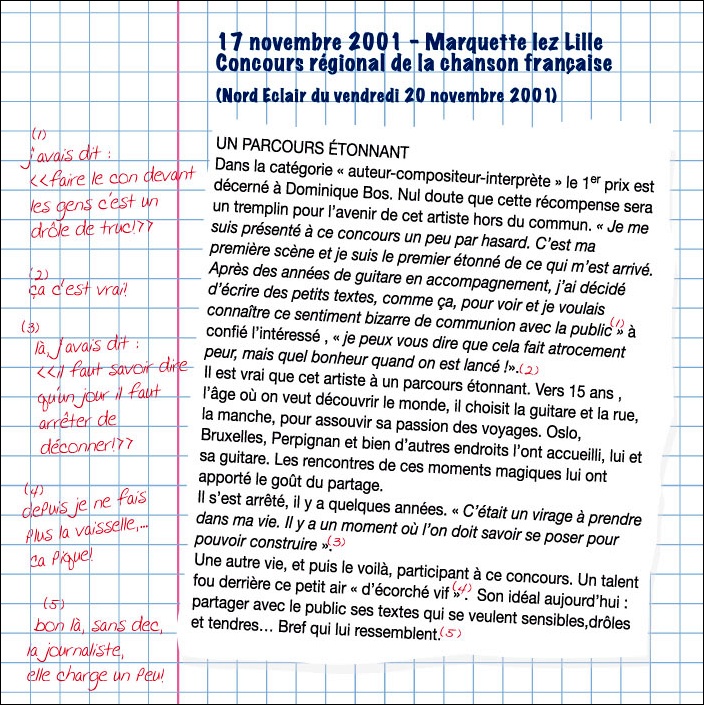 17 novembre 2001 - Marquette lez Lille
Concours régional de la chanson française
(Nord Eclair du vendredi 20 novembre 2001)
UN PARCOURS ÉTONNANT
Dans la catégorie « auteur-compositeur-interprète » le 1er prix est
décerné à Dominique Bos. Nul doute que cette récompense sera
un tremplin pour l'avenir de cet artiste hors du commun. « Je me
suis présenté à ce concours un peu par hasard. C'est ma
première scène et je suis le premier étonné de ce qui m'est arrivé.
Après des années de guitare en accompagnement, j'ai décidé
d'écrire des petits textes, comme ça, pour voir et je voulais
connaître ce sentiment bizarre de communion avec la public(1) » à
confié l'intéressé , « je peux vous dire que cela fait atrocement
peur, mais quel bonheur quand on est lancé !».(2)
Il est vrai que cet artiste à un parcours étonnant. Vers 15 ans ,
l'âge où on veut découvrir le monde, il choisit la guitare et la rue,
la manche, pour assouvir sa passion des voyages. Oslo,
Bruxelles, Perpignan et bien d'autres endroits l'ont accueilli, lui et
sa guitare. Les rencontres de ces moments magiques lui ont
apporté le goût du partage.
Il s'est arrêté, il y a quelques années. « C'était un virage à prendre
dans ma vie. Il y a un moment où l'on doit savoir se poser pour
pouvoir construire ».(3)
Une autre vie, et puis le voilà, participant à ce concours. Un talent
fou derrière ce petit air « d'écorché vif »(4). Son idéal aujourd'hui :
partager avec le public ses textes qui se veulent sensibles,drôles
et tendres... Bref qui lui ressemblent.(5)
(1)
j'avais dit :
<<faire le con devant
les gens c'est un
drôle de truc!>>
(2)
ça c'est vrai!
(3)
là, j'avais dit :
<<il faut savoir dire
qu'un jour il faut
arrêter de
déconner!>>
(4)
depuis je ne fais
plus la vaisselle,...
ça pique!
(5)
bon là, sans dec,
la journaliste,
elle charge un peu!